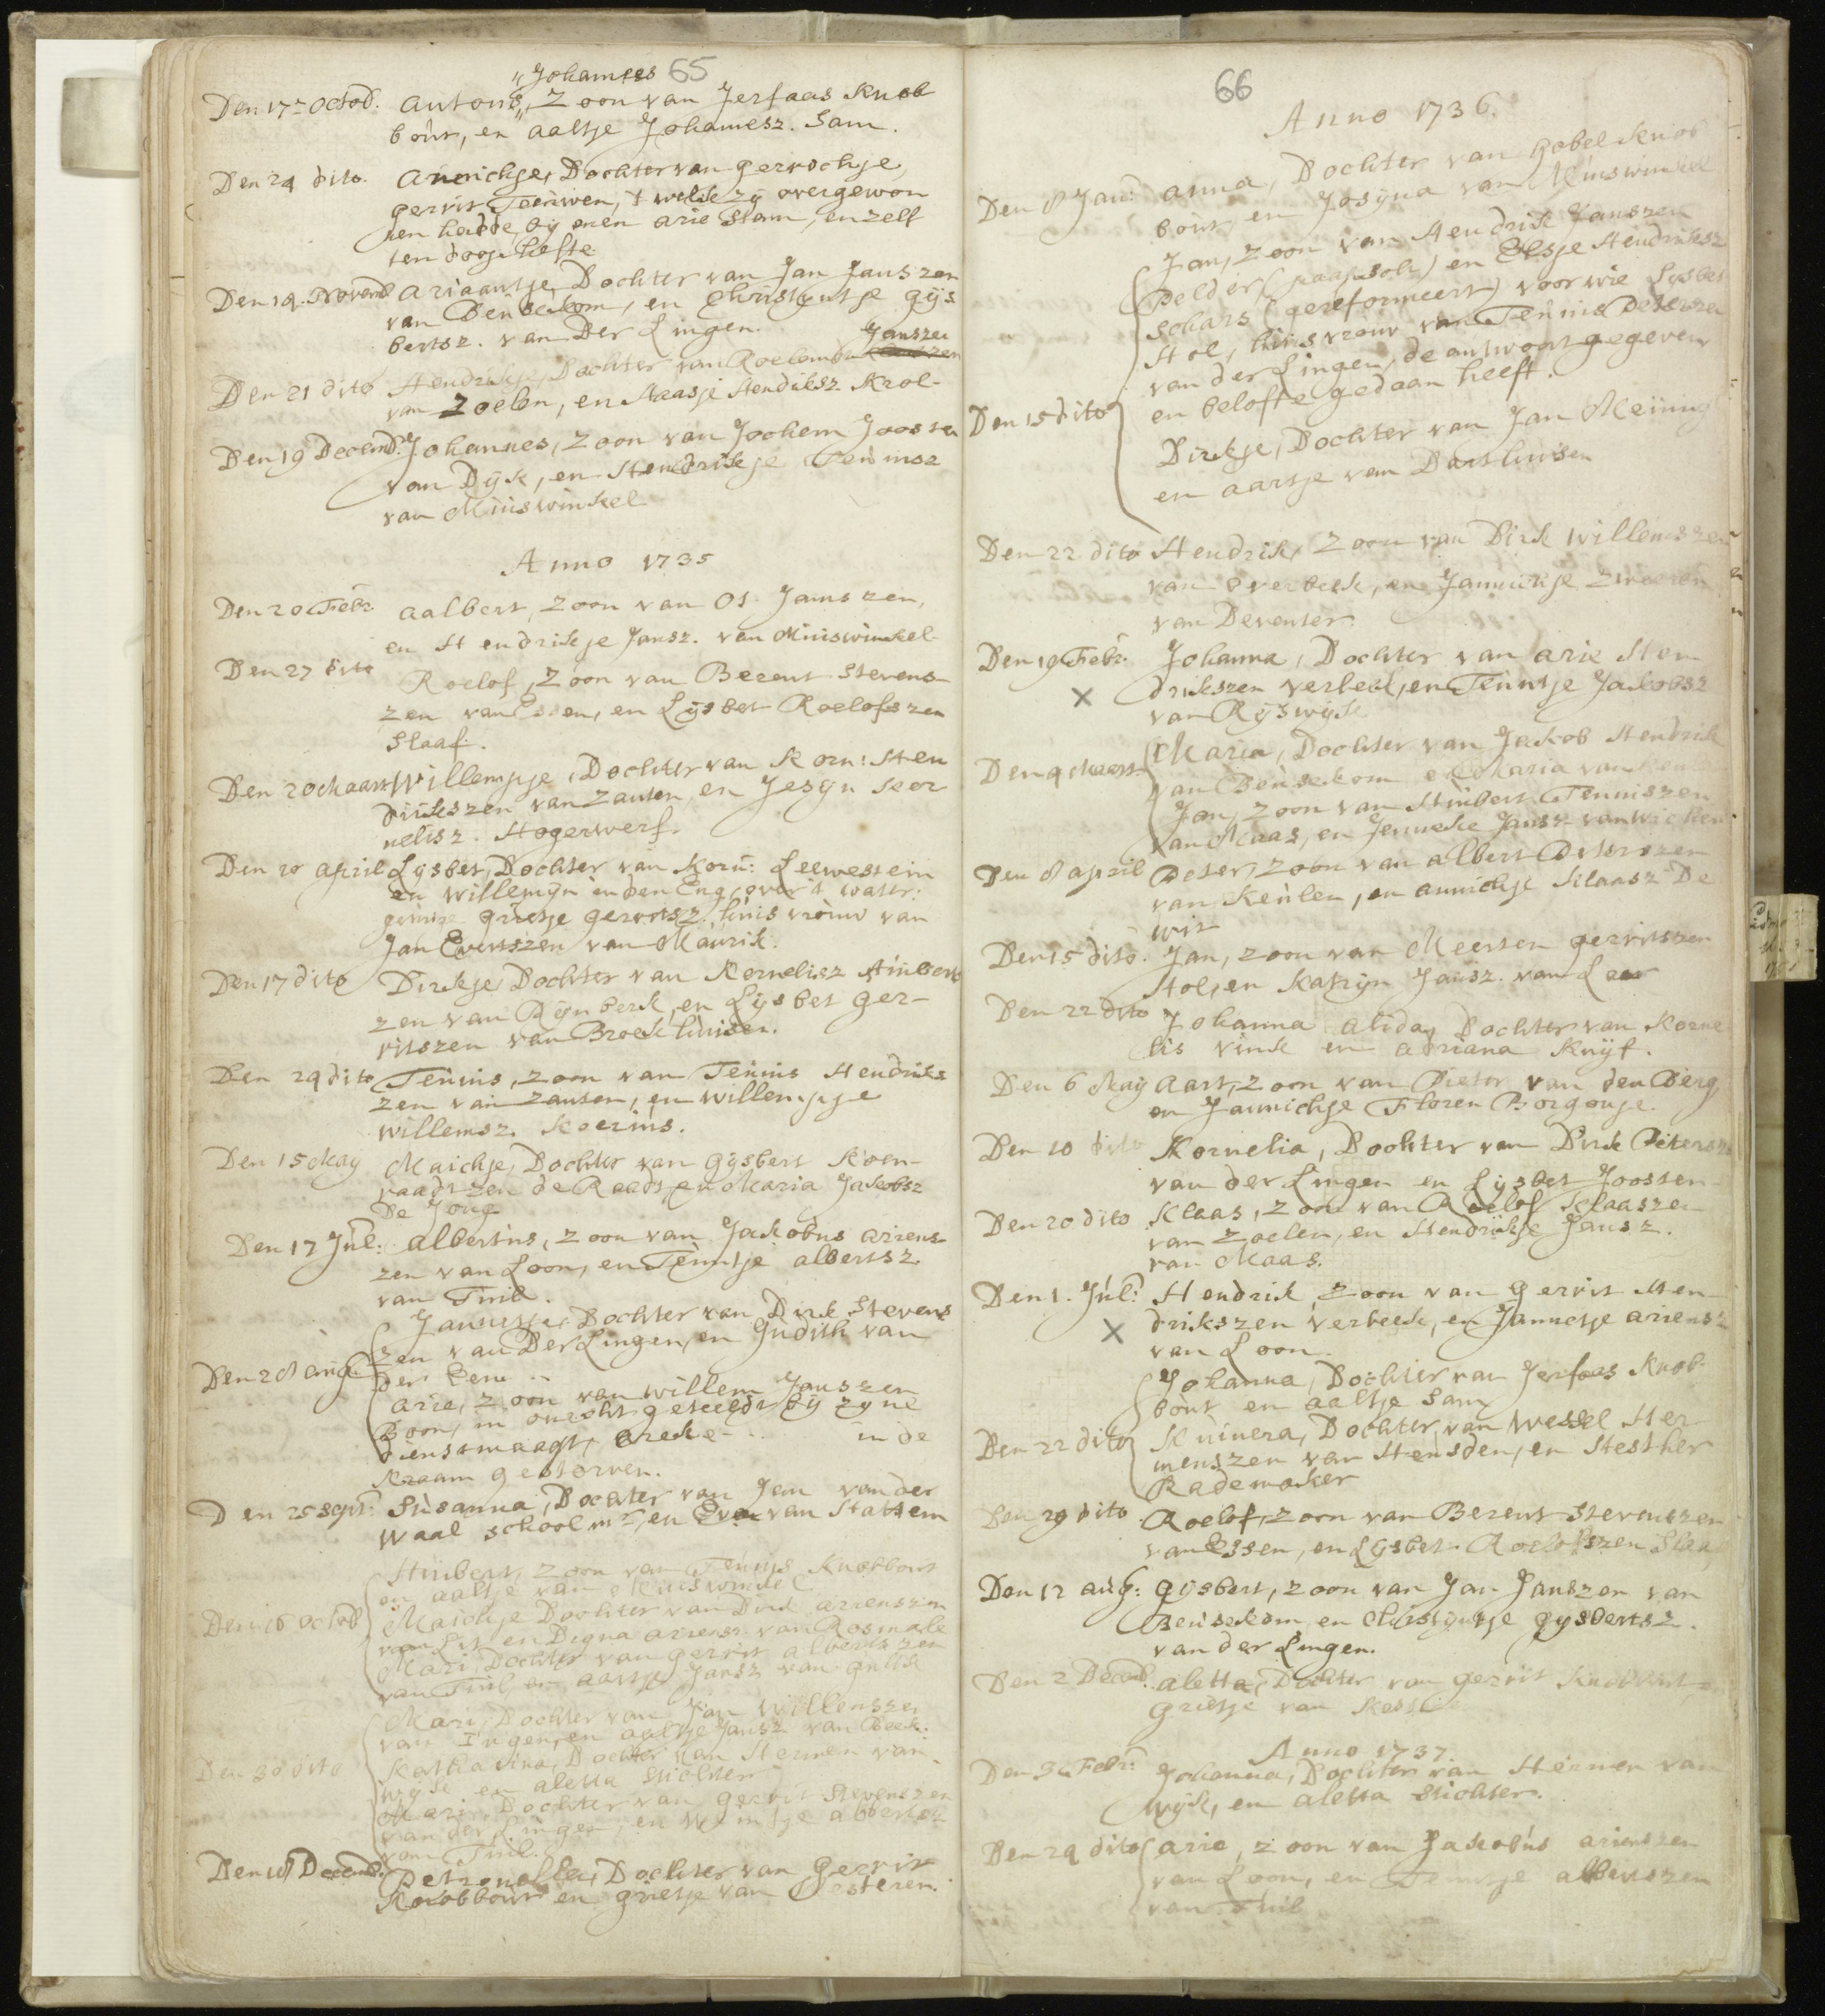 65
„Johannes
Den 17 Octob. Antonis, Zoon van Jerfaas Knob
bout, en Aaltje Johannesz. Sam.
Den 24 dito. Annichje, Dochter van Gerrichje
Gerrits Teeuwen, 't welk zy overgewon
nen hadde by enen Arie Stam, en zelf
ten doop hefte.
Den 14 Novemb. Ariaantje, Dochter van Jan Janszen
van Beusekom, en Christyntje Gys
bertsz. van Der Lingen.
Janszen
Den 21 dito Hendrikje, Dochter van Roelof
van Zoelen, en Maasje Hendriksz Krol
Den 19 Decemb. Johannes, Zoon van Jochem Joosten
van Dyk, en Hendrikje Teunisz
van Muiswinkel
Anno 1735
Den 20 Febr. Aalbert, Zoon van Ot Janszen,
en Hendrikje Jansz. van Muiswinkel
Den 27 dito Roelof, Zoon van Berent Stevens
zen van Essen, en Lysbet Roelofszen
Slaaf.
Den 20 Maart Willempje, Dochter van Korn: Hen
drikszen van Zanten, en Jesyn Kor
nelisz. Hogerwerf.
Den 10 April Lysbet, Dochter van Korn: Leewestein
en Willemyn in den Eng, over 't water:
getuige Grietje Gerritsz. huisvrouw van
Jan Evertszen van Maurik.
Den 17 dito Dirkje, Dochter van Kornelisz Huibert
zen van Rynberk, en Lysbet Ger-
ritszen van Broekhuisen.
Den 24 dito Teunis, Zoon van Teunis Hendriks
zen van Zanten, en Willempje
Willemsz. Koerins.
Den 15 May Maichje, Dochter van Gysbert Koen-
raadszen de Raadt, en Maria Jakobsz
De Jong
Den 17 Jul: Albertus, Zoon van Jakobus Ariens
zen van Loon, en Teuntje Albertsz.
van Tuil.
Jannetje, Dochter van Dirk Stevens
zen van Der Lingen, en Judith van
Den 28 Aug. der Leeu
Arie, Zoon van Willem Janszen
Boon, in onecht geteeldt by zyne
dienstmaagt, in de
Kraam gestorven.
Den 25 Sept. Susanna, Dochter van Jan van der
Waal schoolmr, en Eva van Hattem
Huibert, Zoon van Teunis Knobbout
en Aaltje van Muiswinkel
Den 16 Octob Maichje Dochter van Dirk Arienszen
van Lit, en Digna Ariensz. van Rosmale
Mari, Dochter van Gerrit Albertszen
van Tuil, en Aartje Jansz van Gulik
Mari, Dochter van Jan Willemszen
van Ingen, en Aaltje Jansz van Beek:
Den 30 dito Katharina, Dochter van Hermen van
Wyk, en Aletta Stichter
Mari, Dochter van Gerrit Stevenszen
van der Lingen, en Alberts
van Tuil.
Den 18 Decemb. Petronella, Dochter van Gerrit
Knobbout en Grietje van Kesteren.
66
Anno 1736.
Den 8 Jan: Anna, Dochter van Gobel Knob
bout, en Josyna van Muiswinkel
Jan, Zoon van Hendrik Janszen
Pelder (paapsch) en Elsje Hendriksz
Schars (gereformeert) voor wie Lysbet
Stol, huisvrouw van Teunis Peterszen
van der Lingen, de antwoort gegeven
en belofte gedaan heeft.
Den 15 dito
Dirkje, Dochter van Jan Meiuing
en Aartje van Darthuisen
Den 22 dito Hendrik, Zoon van Dirk Willemszen
van Overbeek, en Jannickje Zweeren
van Deventer.
Den 19 Febr. Johanna, Dochter van Arie Hen
x drikszen Verbeek, en Teuntje Jakobsz
van Ryswyk
Den 4 Maart Maria, Dochter van Jakob Hendrik
van Beusekom en Maria van
Jan, Zoon van Huibert Teuniszen
van Maas, en Jenneke Jansz van
Den 8 April Peter, Zoon van Albert Peterszen
van Keulen, en Annichje Klaasz De
Wit
Den 15 dito. Jan, Zoon van Meerten Gerritszen
Stol, en Katryn Jansz. van Leer
Den 22 dito Johanna Alida, Dochter van Korne
lis Vink en Adriana Kuyf.
Den 6 May Aart, Zoon van Pieter van den Berg
en Jannichje Floren Borgonje.
Den 10 dito Kornelia, Dochter van Dirk Petersz
van der Lingen en Lysbet Joosten
Den 20 dito Klaas, Zoon van Roelof Klaaszen
van Zoelen, en Hendrikje Jansz.
van Maas.
Den 1. Jul: Hendrik, Zoon van Gerrit Hen
x drikszen Verbeek, en Jannetje Ariensz
van Loon.
Johanna, Dochter van Jerfaas Knob
bout en Aaltje Sam
Den 22 dito Kuinera, Dochter van Wessel Her
menszen van Heusden, en Hesther
Rademaker
Den 29 dito. Roelof, Zoon van Berent Stevenszen
van Essen, en Lysbet Roelofszen Slaaf
Den 12 Aug: Gysbert, Zoon van Jan Janszen van
Beusekom, en Christyntje Gysbertsz.
van der Lingen.
Den 2 Decemb. Aletta, Dochter van Gerrit Knobbout, en
Grietje van
Anno 1737.
Den 3 Febr: Johanna, Dochter van Hermen van
Wyk, en Aletta Stichter.
Den 24 dito Arie, Zoon van Jakobus Arienszen
van Loon, en Teuntje Albertszen
van Tuil